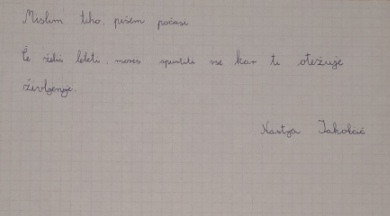 Mislim tiho pišem počasi
Če želiš leteti, moraš spustiti vse kar ti otežuje
življenje.
Nastja Jakobčič